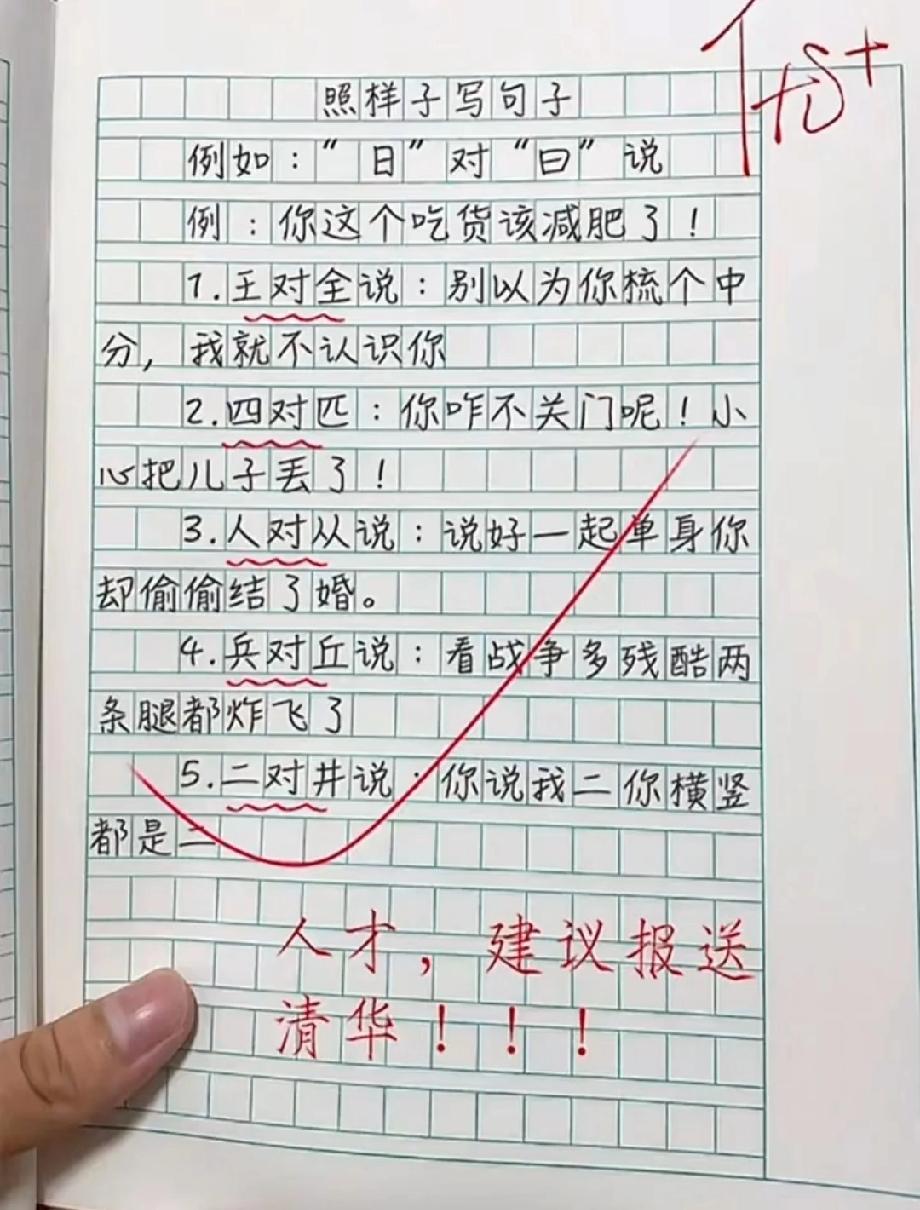 优+
照样子写句子
例如："日"对"曰"说
例：你这个吃货该减肥了！
1.王对全说：别以为你梳个中
分，我就不认识你
2.四对匹：你咋不关门呢！小
心把儿子丢了！
3.人对从说：说好一起单身你
却偷偷结了婚。
4.兵对丘说：看战争多残酷两
条腿都炸飞了
5.二对井说：你说我二你横竖
都是二
人才，建议报送
清华！！！